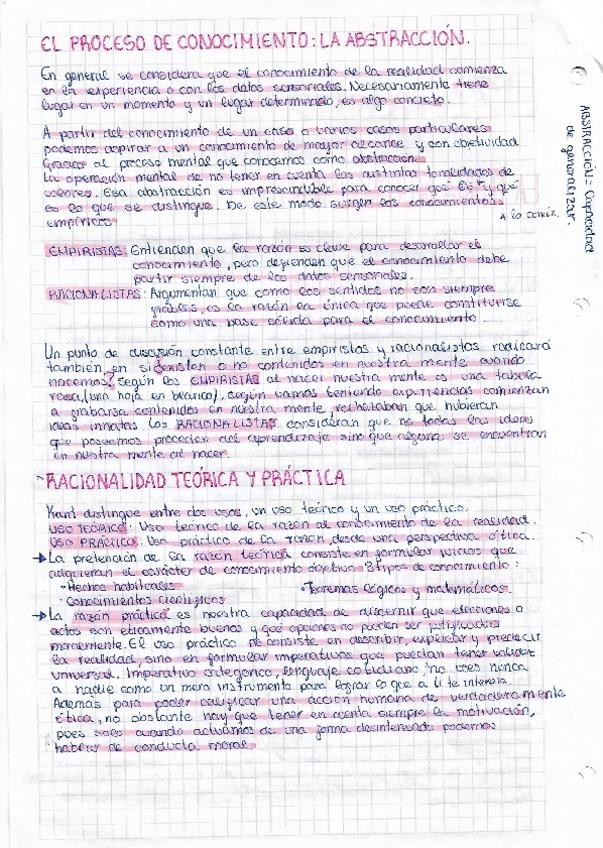 EL PROCESO DE CONOCIMIENTO: LA ABSTRACCIÓN.
En general se considera que el conocimiento de la realidad comienza
en la experiencia o con los datos sensoriales. Necesariamente tiene
lugar en un momento y un lugar determinado, es algo concreto.
A partir del conocimiento de un caso o varios casos particulares
podemos aspirar a un conocimiento de mayor alcance y con objetividad
Gracias al proceso mental que conocemos como abstracción.
La operación mental de no tener en cuenta las distintas tonalidades de
colores. Esa abstracción es imprescindible para conocer qué es y qué
es lo que se distingue. De este modo surgen los conocimientos
empíricos
A lo concr.
ABSTRACCIÓN = Capacidad
de generalizar.
EMPIRISTAS: Entienden que la razón es clave para desarrollar el
conocimiento, pero defienden que el conocimiento debe
partir siempre de los datos sensoriales.
RACIONALISTAS: Argumentan que como los sentidos no son siempre
fiables, es la razón la única que puede constituirse
como una base sólida para el conocimiento.
Un punto de discusión constante entre empiristas y racionalistas radicará
también en si existen o no contenidos en nuestra mente cuando
nacemos, según los EMPIRISTAS al nacer nuestra mente es una tabula
rasa (una hoja en blanco), según vamos teniendo experiencias comienzan
a grabarse contenidos en nuestra mente, rechazaban que hubieran
ideas innatas. Los RACIONALISTAS consideran que no todas las ideas
que poseemos proceden del aprendizaje sino que algunas se encuentran
en nuestra mente al nacer.
RACIONALIDAD TEÓRICA Y PRÁCTICA
Kant distingue entre dos usos, un uso teórico y un uso práctico.
USO TEÓRICO: Uso teórico de la razón al conocimiento de la realidad.
USO PRÁCTICA: Uso práctico de la razón, desde una perspectiva ética.
→ La pretención de la razón teórica consiste en formular juicios que
adquieran el carácter de conocimiento objetivo. 3 tipos de conocimiento:
· Hechos habituales · Teoremas lógicos y matemáticos.
· Conocimientos científicos
→ La razón práctica es nuestra capacidad de discernir que elecciones o
actos son éticamente buenos y qué opciones no pueden ser justificados
moralmente. El uso práctico no consiste en describir, explicar y predecir
la realidad, sino en formular imperativos que puedan tener validez
universal. Imperativo categórico, lenguaje cotidiano, no uses nunca
a nadie como un mero instrumento para lograr lo que a ti te interesa.
Además para poder calificar una acción humana de verdaderamente
ética, no obstante hay que tener en cuenta siempre la motivación,
pues solo cuando actuamos de una forma desinteresada podemos
hablar de conducta moral.